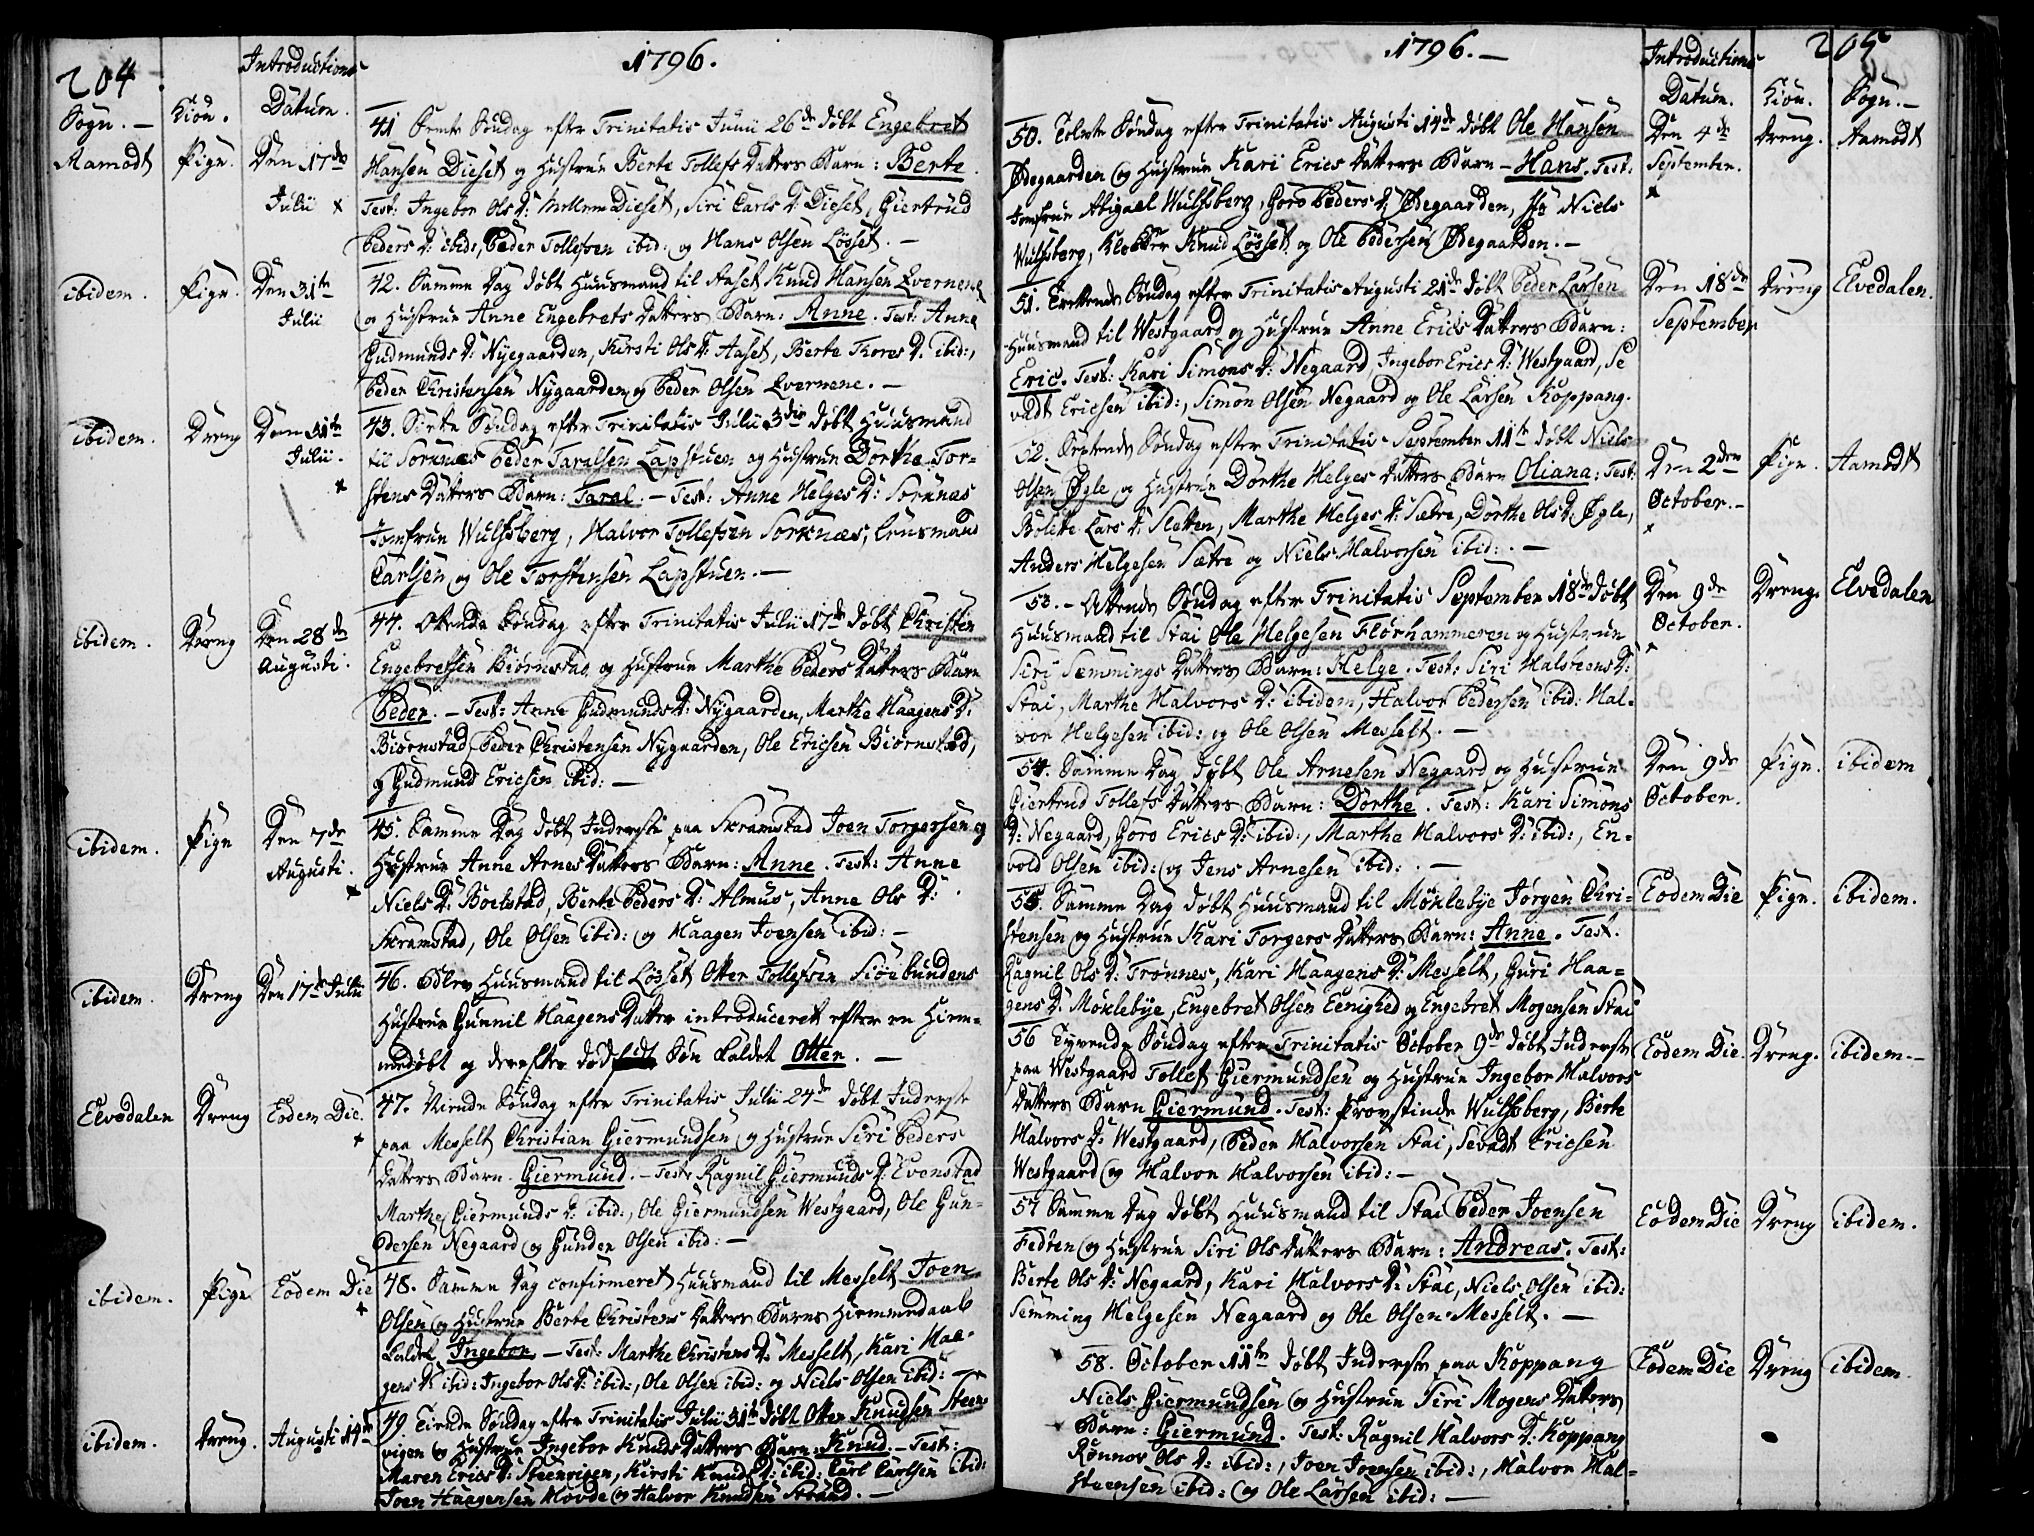 204.
1796.
Sogn. —
Kiön.
Introductions
Datum.
Aamodt
Pige.
Den 17de
Julii x
41 Femte Söndag efter Trinitatis Junii 26de döbt Engebret
Hansen Dieset og Hustrue Berte Tollefs Datters Barn: Berte.
Test: Ingebor Ols D: Dieset, Siri Carls D: Dieset, Giertrud
Peders D: ibid:, Peder Tollefsen ibid: og Hans Olsen Lösset. —
ibidem.
Pige.
Den 31te
Julii
42. Samme Dag döbt Huusmand til Aaset Knud Hansen Qvernene
og Hustrue Anne Engebrets Datters Barn: Anne. Test: Anne
Gudmunds D: Nyegaarden, Kirsti Ols D: Aaset, Berte Thores D. ibid:,
Peder Christensen Nygaarden og Peder Olsen Qvernene. —
ibidem.
Dreng
Den 31te
Julii.
x
43. Siette Söndag efter Trinitatis Julii 3die döbt Huusmand
til Sorknæs Peder Taralsen Lapstuen og Hustrue Dorthe Tor-
stens Datters Barn: Taral. — Test: Anne Helges D: Sorknæs
Jomfrue Wulfsberg, Halvor Tollefsen Sorknæs, Lensmand
Carlsen og Ole Torstensen Lapstuen. —
ibidem.
Dreng
Den 28de
Augusti.
44. Ottende Söndag efter Trinitatis Julii 17de döbt Christen
Engebretsen Biörnstad og Hustrue Marthe Peders Datters Barn
Peder. — Test: Anne Gudmunds D: Nygaarden, Marthe Haagens D:
Biörnstad, Peder Christensen Nygaarden, Ole Ericsen Biörnstad,
og Gudmund Ericsen ibid: —
ibidem.
Pige
Den 7de
Augusti.
x
45. Samme Dag döbt Inderste paa Skramstad Joen Torgersen og
Hustrue Anne Arnes Datters Barn: Anne. Test: Anne
Niels D: Bolstad, Berte Peders D: Almus, Anne Ols D:
Skramstad, Ole Olsen ibid: og Haagen Joensen ibid: —
ibidem.
Dreng
Den 17de Julii
46. Blev Huusmand til Lösset Otter Tollefsen Siöebundens
Hustrue Gunnil Haagens Datter introduceret efter en Hiem-
medöbt og derefter död Sön kaldet Otter. —
Elvedalen
Dreng
Eodem Die.
x
47. Niende Söndag efter Trinitatis Julii 24de döbt Inderste
paa Messelt Christian Giermundsen og Hustrue Siri Peders
Datters Barn. Giermund. — Test: Ragnil Giermunds D: Evenstad
Marthe Giermunds D: ibid:, Ole Giermundsen Westgaard, Ole Gun-
dersen Negaard og Gunder Olsen ibid: —
ibidem.
Pige
Eodem Die
x
48. Samme Dag confirmeret Huusmand til Messelt Joen
Olsen og Hustrue Berte Christens Datters Barns Hiemmedaab
kaldet Ingebor. — Test: Marthe Christens D: Messelt, Kari Haa-
gens D: ibid: Ingebor Ols D: ibid:, Ole Olsen ibid: og Niels Olsen ibid: —
ibidem.
Dreng.
Augusti 14de
49. Tiende Söndag efter Trinitatis Julii 31te döbt Otter Knudsen Steen-
vigen og Hustrue Ingebor Knuds Datters Barn: Knud. — Test:
Maren Erics D: Steenvigen, Kirsti Knuds D: ibid: Carl Carlsen ibid:
Joen Haagensen Hovde og Halvor Knudsen Strand. —
1796. —
205
Introductions
Datum.
Kiön.
Sogn. —
50. Tolvte Söndag efter Trinitatis Augusti 14de döbt Ole Hansen
Ödegaarden og Hustrue Kari Erics Datters Barn — Hans. Test:
Jomfrue Abigael Wulfsberg, Goro Peders D: Ödegaarden, Hr Niels
Wulfsberg, Klokker Knud Lösset og Ole Pedersen Ödegaarden. —
Den 4de
September.
x
Dreng.
Aamodt
51. Trettende Söndag efter Trinitatis Augusti 21de döbt Peder Larsen
Huusmand til Westgaard og Hustrue Anne Erics Datters Barn:
Eric. Test: Kari Simons D: Negaard, Ingebor Erics D: Westgaard, Se
vadt Ericsen ibid:, Simon Olsen Negaard og Ole Larsen Koppang.
Den 18de
September
Dreng
Elvedalen.
52. Septende Söndag efter Trinitatis September 11te döbt Niels
Olsen Ögle og Hustrue Dorthe Helges Datters Barn Oliana: Test:
Bolette Lars D: Sletten, Marthe Helges D: Sætre, Dorthe Ols D: Ögle,
Anders Helgesen Sætre og Niels Halvorsen ibid: . —
Den 2den
October. —
x
Pige.
Aamodt
53. — Attende Söndag efter Trinitatis September 18de döbt
Huusmand til Stai Ole Helgesen Flörhammeren og Hustrue
Siri Semmings Datters Barn: Helge. Test: Siri Halsteens D:
Stai, Marthe Halvors D: ibidem, Halvor Pedersen ibid: Hal-
vor Helgesen ibid: og Ole Olsen Messelt. —
Den 9de
October.
x
Dreng.
Elvedalen
54. Samme Dag döbt Ole Arnesen Negaard og Hustrue
Giertrud Tollefs Datters Barn: Dorthe. Test: Kari Simons
D: Negaard, Goro Erics D: ibid:, Marthe Halvors D: ibid:, En-
vold Olsen ibid: og Jens Arnesen ibid: . —
Den 9de
October.
Pige.
ibidem
55. Samme Dag döbt Huusmand til Möklebye Jörgen Chri-
stensen og Hustrue Kari Torgers Datters Barn: Anne. Test.
Ragnil Ols D: Trönnes, Kari Haagens D: Messelt, Guri Haa-
gens D: Möklebye, Engebret Olsen Eenighed og Engebret Mogensen Stai
Eodem Die
Pige.
ibidem.
56 Tyvende Söndag efter Trinitatis October 9de döbt Inderste
paa Westgaard Tollef Giermundsen og Hustrue Ingebor Halvors
Datters Barn Giermund. Test: Provstinde Wulfsberg, Berte
Halvors D: Westgaard, Peder Halvorsen Stai, Sevadt Ericsen
Westgaard og Halvor Halvorsen ibid: —
Eodem Die.
Dreng.
ibidem. —
57 Samme Dag döbt Huusmand til Stai Peder Joensen
Fedten og Hustrue Siri Ols Datters Barn: Andreas. Test:
Berte Ols D: Negaard, Kari Halvors D: Stai, Niels Olsen ibid:
Semming Helgesen Negaard og Ole Olsen Messelt. —
Eodem Die
Dreng
ibidem.
58. October 11te döbt Inderste paa Koppang
Niels Giermundsen og Hustrue Siri Mogens Datters
Barn: Giermund. Test: Ragnil Halvors D: Koppang
Rönnov Ols D: ibid:, Joen Joensen ibid:, Halvor Hal-
steensen ibid: og Ole Larsen ibid: —
Eodem Die
Dreng
ibidem.